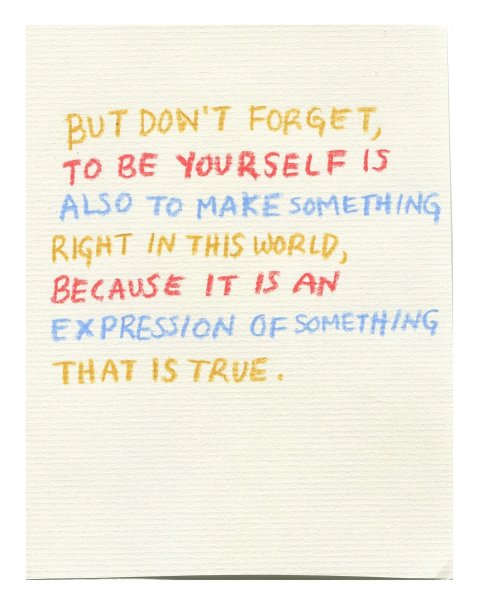 BUT DON'T FORGET,
TO BE YOURSELF IS
ALSO TO MAKE SOMETHING
RIGHT IN THIS WORLD,
BECAUSE IT IS AN
EXPRESSION OF SOMETHING
THAT IS TRUE.